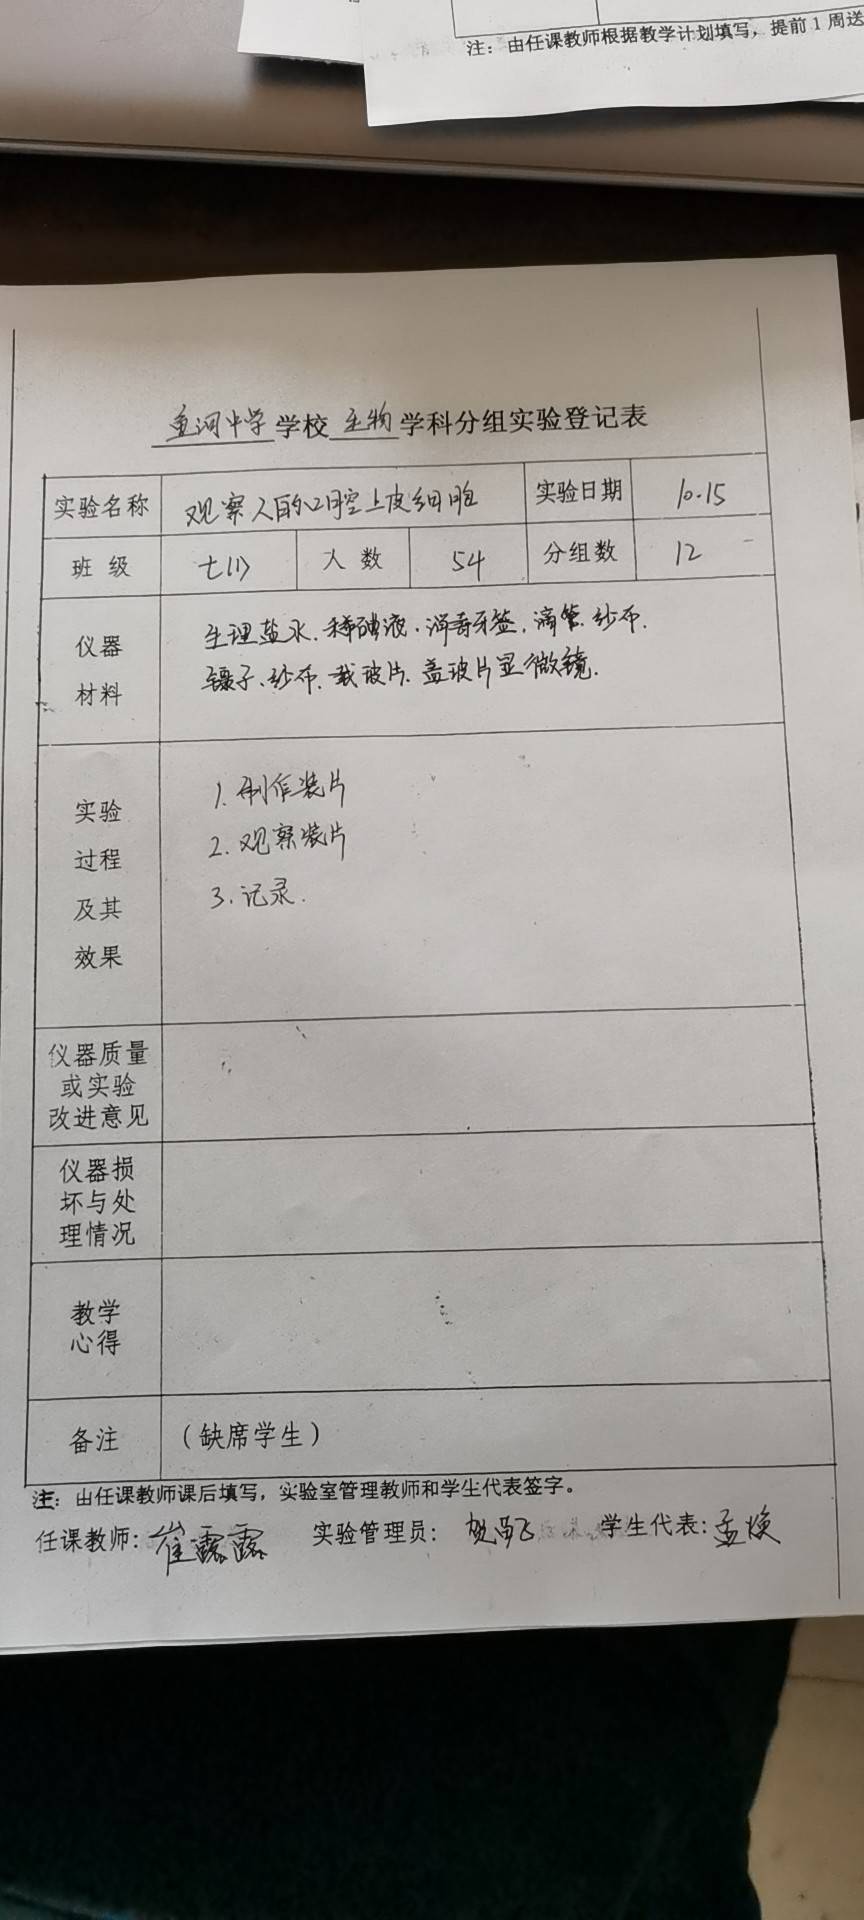 注：由任课教师根据教学计划填写，提前1周送
鱼河中学学校生物学科分组实验登记表
实验名称 观察人的口腔上皮细胞 实验日期 10.15
班级 七(1) 人数 54 分组数 12
仪器
材料
生理盐水.稀碘液.消毒牙签.滴管.纱布.
镊子.纱布.载玻片.盖玻片显微镜.
实验
过程
及其
效果
1.制作装片
2.观察装片
3.记录.
仪器质量
或实验
改进意见
仪器损
坏与处
理情况
教学
心得
备注 （缺席学生）
注：由任课教师课后填写，实验室管理教师和学生代表签字。
任课教师：崔露露 实验管理员： 学生代表：孟焕